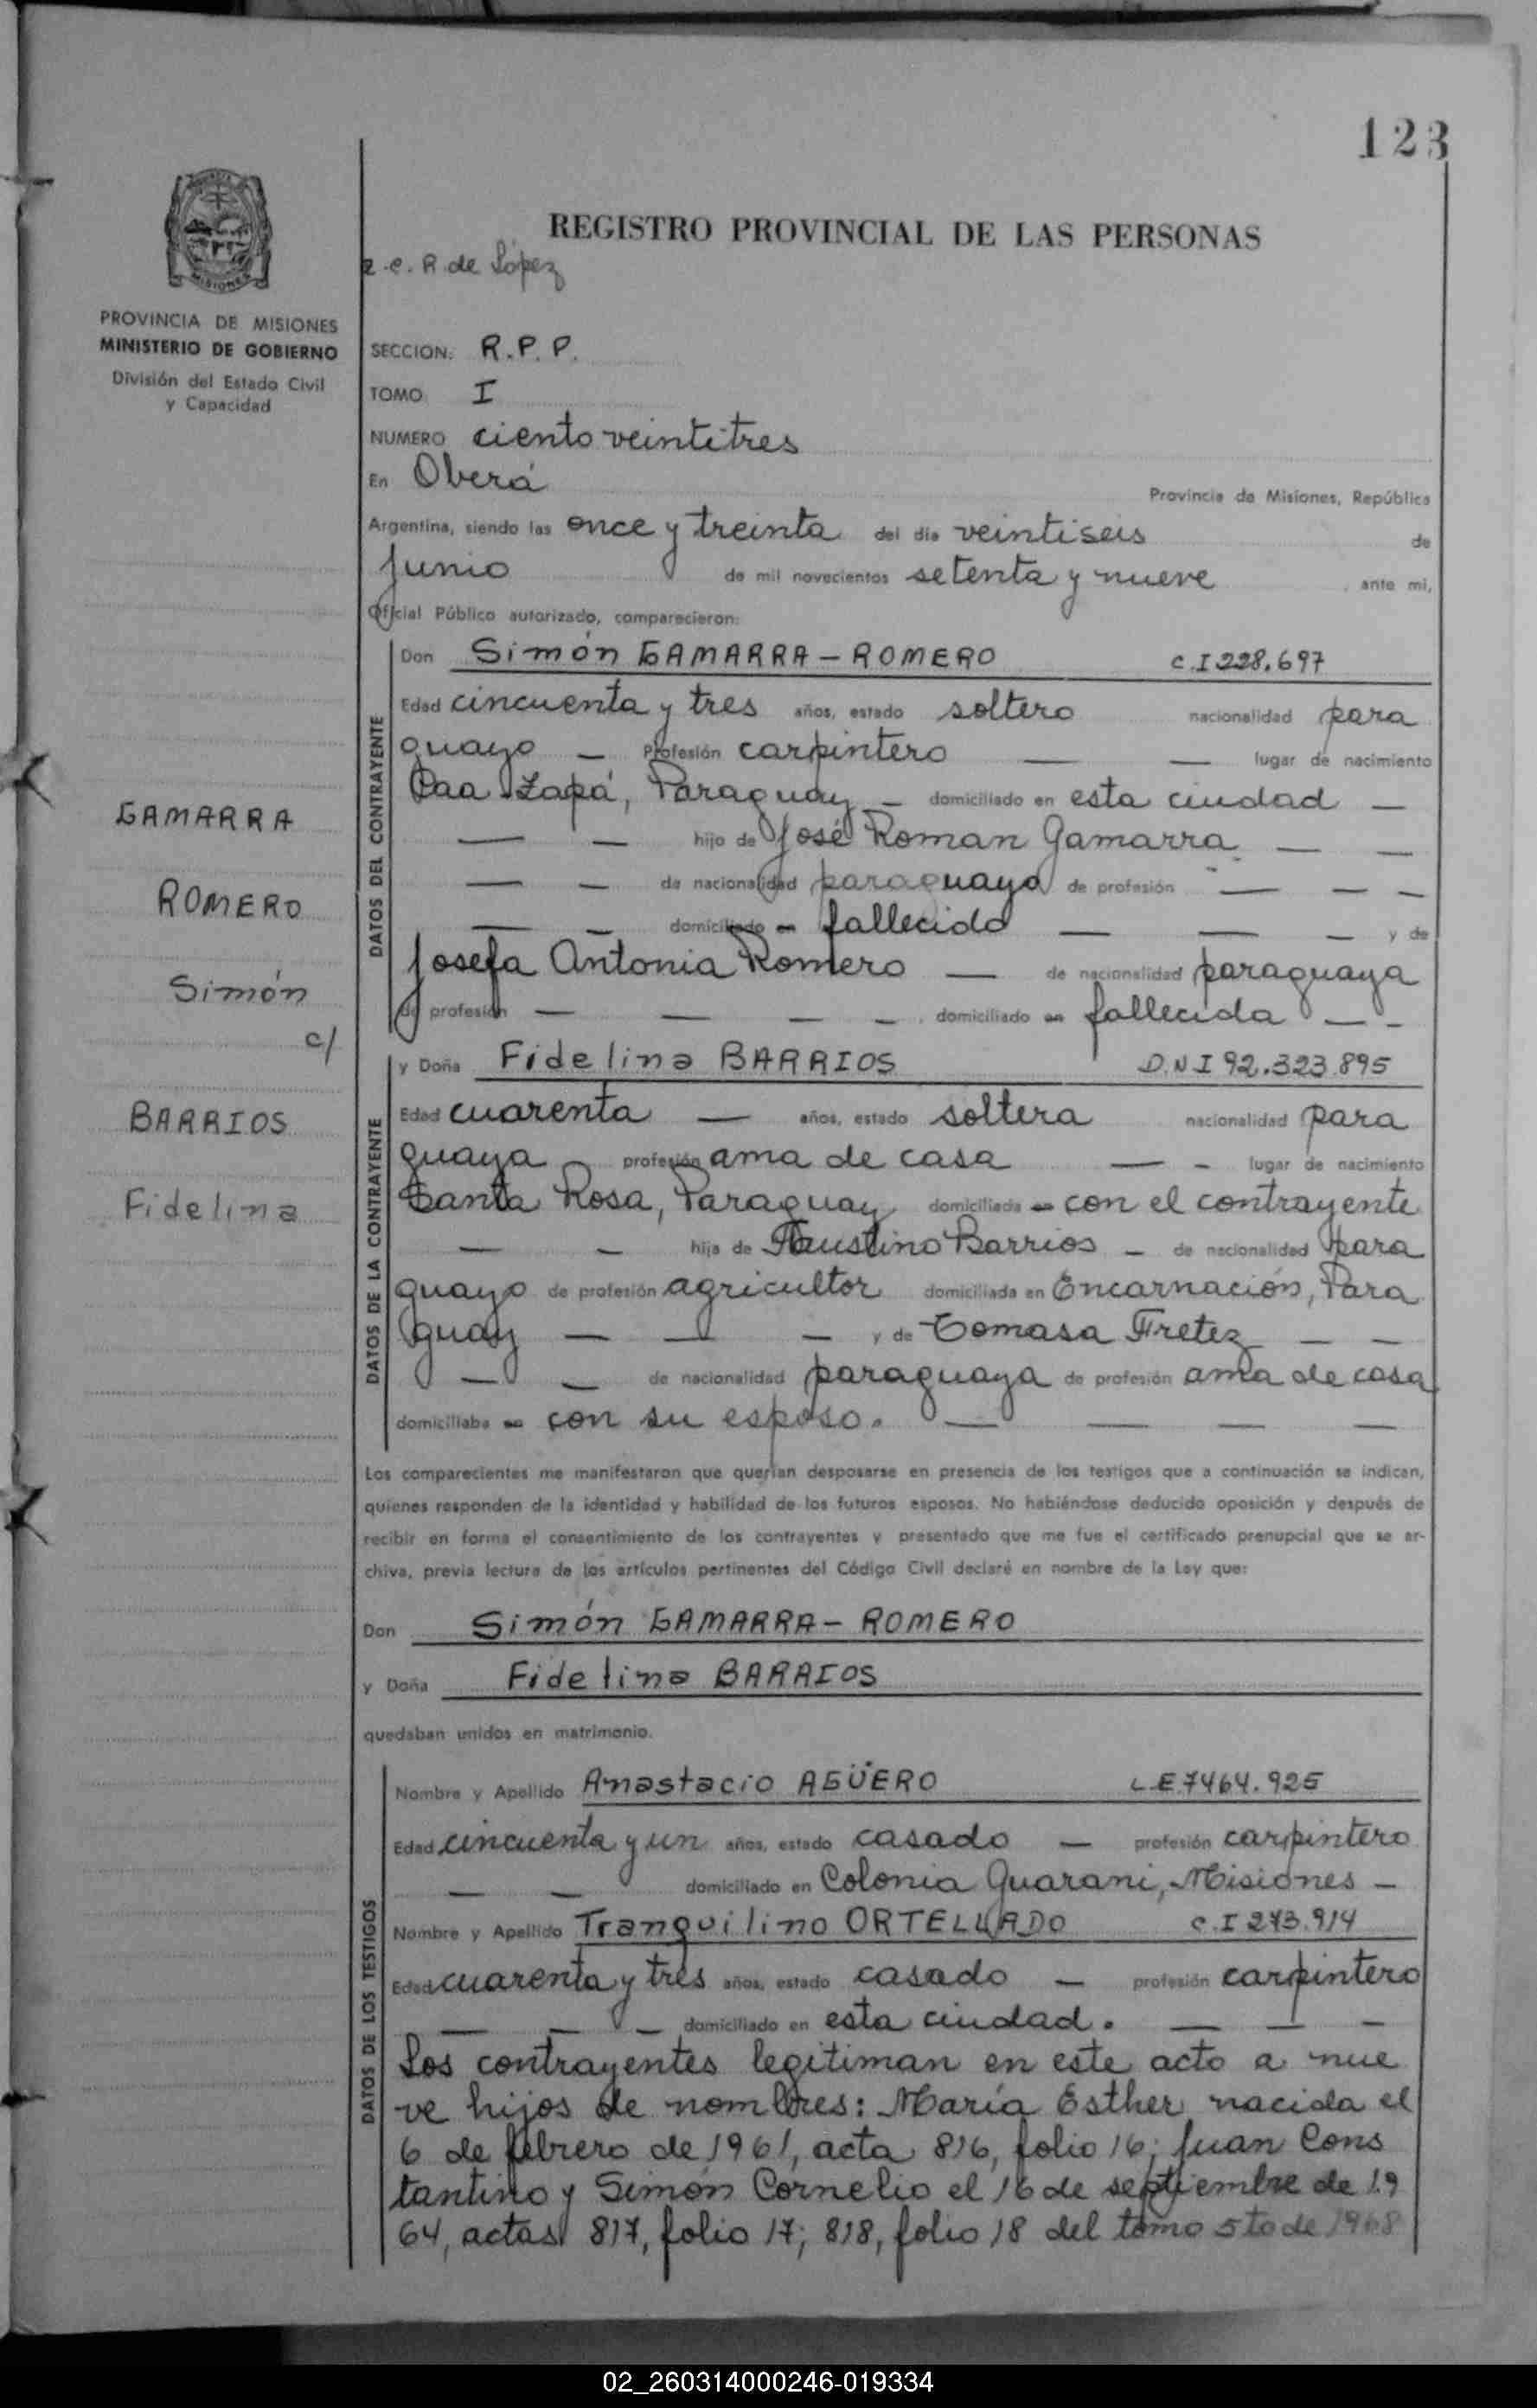 123
REGISTRO PROVINCIAL DE LAS PERSONAS
R. de López
PROVINCIA DE MISIONES
MINISTERIO DE GOBIERNO
División del Estado Civil
y Capacidad
SECCION: R.P.P.
TOMO I
NUMERO ciento veintitres
En Oberá
Provincia de Misiones, República
Argentina, siendo las once y treinta del día veintiseis de
junio de mil novecientos setenta y nueve, ante mi,
Oficial Público autorizado, comparecieron:
GAMARRA
ROMERO
Simón
c/
BARRIOS
Fidelina
DATOS DEL CONTRAYENTE
Don Simón GAMARRA - ROMERO C.I 228.697
Edad cincuenta y tres años, estado soltero nacionalidad para
guayo — Profesión carpintero — — lugar de nacimiento
Caa Zapá, Paraguay — domiciliado en esta ciudad —
— — hijo de José Roman Gamarra — —
— — de nacionalidad paraguaya de profesión — — —
— — domiciliado en fallecido — — — y de
Josefa Antonia Romero — de nacionalidad paraguaya
de profesión — — — — domiciliado en fallecida — —
DATOS DE LA CONTRAYENTE
y Doña Fidelina BARRIOS D.N.I 92.323.895
Edad cuarenta — años, estado soltera nacionalidad para
guaya profesión ama de casa — — lugar de nacimiento
Santa Rosa, Paraguay domiciliada en con el contrayente
— — hija de Faustino Barrios — de nacionalidad para
guayo de profesión agricultor domiciliada en Encarnación, Para
guay — — — y de Tomasa Fretez — —
— — de nacionalidad paraguaya de profesión ama de casa
domiciliaba en con su esposo. — — — —
Los comparecientes me manifestaron que querían desposarse en presencia de los testigos que a continuación se indican,
quienes responden de la identidad y habilidad de los futuros esposos. No habiéndose deducido oposición y después de
recibir en forma el consentimiento de los contrayentes y presentado que me fue el certificado prenupcial que se ar-
chiva, previa lectura de los artículos pertinentes del Código Civil declaré en nombre de la Ley que:
Don Simón GAMARRA - ROMERO
y Doña Fidelina BARRIOS
quedaban unidos en matrimonio.
DATOS DE LOS TESTIGOS
Nombre y Apellido Anastacio AGÜERO L.E.7464.925
Edad cincuenta y un años, estado casado — profesión carpintero
— — domiciliado en Colonia Guarani, Misiones —
Nombre y Apellido Tranquilino ORTELLADO C.I 273.914
Edad cuarenta y tres años, estado casado — profesión carpintero
— — — domiciliado en esta ciudad. — — —
Los contrayentes legitiman en este acto a nue
ve hijos de nombres: María Esther nacida el
6 de febrero de 1961, acta 816, folio 16; Juan Cons
tantino y Simón Cornelio el 16 de septiembre de 19
64, actas 817, folio 17; 818, folio 18 del tomo 5to de 1968
02_260314000246-019334